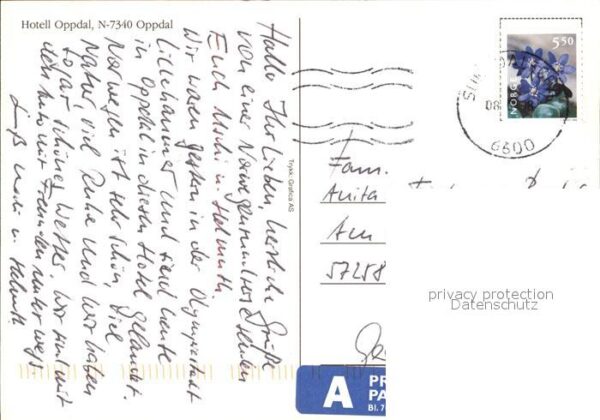 Hotell Oppdal, N-7340 Oppdal
Hallo Ihr Lieben, herzliche Grüße
von einer Norwegenrundreise senden
Euch Uschi u. Helmuth.
Wir waren gestern in der Olympiastadt
Lillehammer und sind heute
in Oppdal in diesem Hotel gelandet.
Norwegen ist sehr schön, viel
Natur, viel Ruhe und wir haben
sogar schönes Wetter. Wir sind mit
dem Auto mit Freunden unterwegs.
Gruß Uschi u. Helmuth
Trykk: Grafica AS
NORGE
5.50
08.
6600
Fam.
Anita
Am
57258
privacy protection
Datenschutz
A
PR
PA
Bl. 7